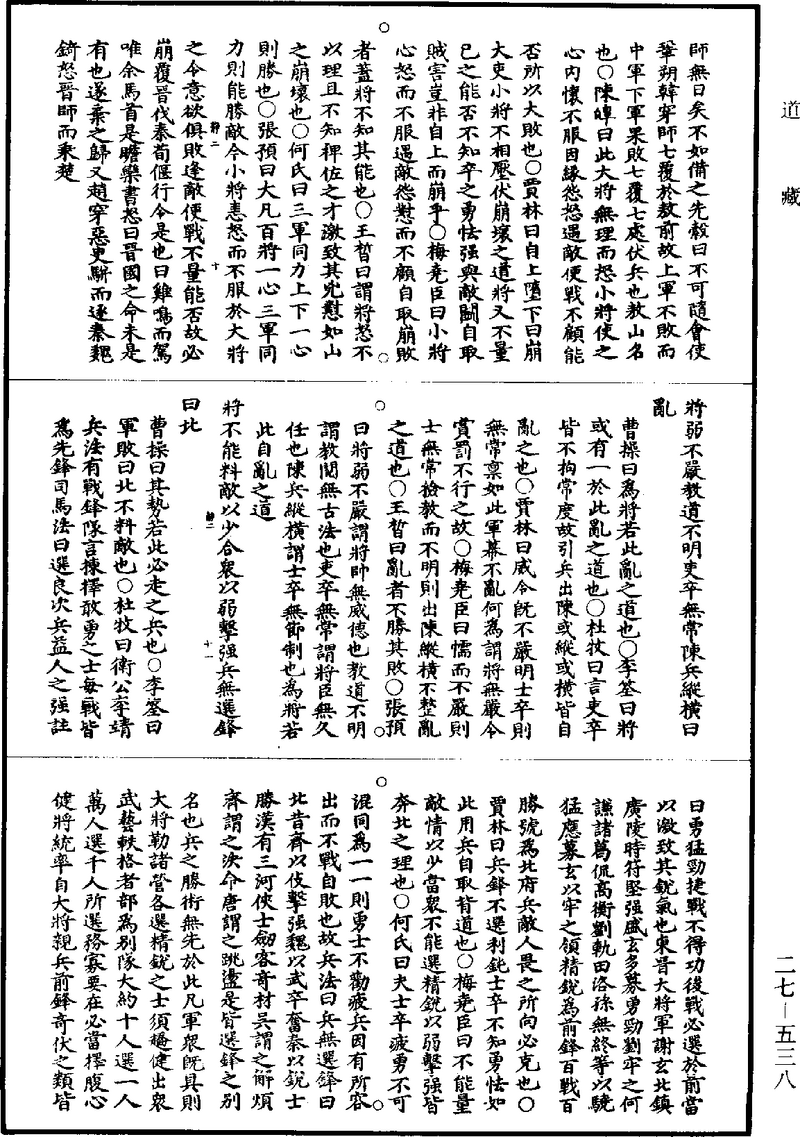 道藏
師無日矣不如備之先縠曰不可隨會使
鞏朔韓穿師七覆於敖前故上軍不敗而
中軍下軍果敗七覆七處伏兵也敖山名
也○陳皥曰此大將無理而怒小將使之
心内懷不服因緣怨怒遇敵便戰不顧能
否所以大敗也○賈林曰自上墮下曰崩
大吏小將不相壓伏崩壞之道將又不量
己之能否不知卒之勇怯强與敵鬬自取
賊害豈非自上而崩乎○梅堯臣曰小將
心怒而不服遇敵怨懟而不顧自取崩敗
者蓋將不知其能也○王晳曰謂將怒不
以理且不知裨佐之才激致其兇懟如山
之崩壞也○何氏曰三軍同力上下一心
則勝也○張預曰大凡百將一心三軍同
力則能勝敵今小將恚怒而不服於大將
静二 十
之令意欲俱敗逢敵便戰不量能否故必
崩覆晉伐秦荀偃行令是也曰雞鳴而駕
唯余馬首是瞻欒書怒曰晉國之命未是
有也遂棄之歸又趙穿惡臾駢而逐秦魏
錡怒晉師而乘楚
將弱不嚴教道不明吏卒無常陳兵縱橫曰
亂
曹操曰為將若此亂之道也○李筌曰將
或有一於此亂之道也○杜牧曰言吏卒
皆不拘常度故引兵出陳或縱或橫皆自
亂之也○賈林曰威令旣不嚴明士卒則
無常稟如此軍幕不亂何為謂將無嚴令
賞罰不行之故○梅堯臣曰懦而不嚴則
士無常檢教而不明則出陳縱橫不整亂
之道也○王晳曰亂者不勝其敗○張預
曰將弱不嚴謂將帥無威德也教道不明
謂教閲無古法也吏卒無常謂將臣無久
任也陳兵縱橫謂士卒無節制也為將若
此自亂之道
將不能料敵以少合衆以弱擊强兵無選鋒
静二 十一
曰北
曹操曰其勢若此必走之兵也○李筌曰
軍敗曰北不料敵也○杜牧曰衛公李靖
兵法有戰鋒隊言揀擇敢勇之士每戰皆
為先鋒司馬法曰選良次兵益人之强註
曰勇猛勁捷戰不得功後戰必選於前當
以激致其銳氣也東晉大將軍謝玄北鎮
廣陵時符堅强盛玄多募勇勁劉牢之何
謙諸葛侃高衡劉軌田洛孫無終等以驍
猛應募玄以牢之領精銳為前鋒百戰百
勝號為北府兵敵人畏之所向必克也○
賈林曰兵鋒不選利鈍士卒不知勇怯如
此用兵自取背道也○梅堯臣曰不能量
敵情以少當衆不能選精銳以弱擊强皆
奔北之理也○何氏曰夫士卒疲勇不可
混同為一一則勇士不勸疲兵因有所容
出而不戰自敗也故兵法曰兵無選鋒曰
北昔齊以伎擊强魏以武卒奮秦以銳士
勝漢有三河俠士劒客奇材吳謂之解煩
齊謂之決命唐謂之跳盪是皆選鋒之别
名也兵之勝術無先於此凡軍衆旣具則
大將勒諸營各選精銳之士須趫健出衆
武藝軼格者部為别隊大約十人選一人
萬人選千人所選務寡要在必當擇腹心
健將統率自大將親兵前鋒奇伏之類皆
二七—五三八